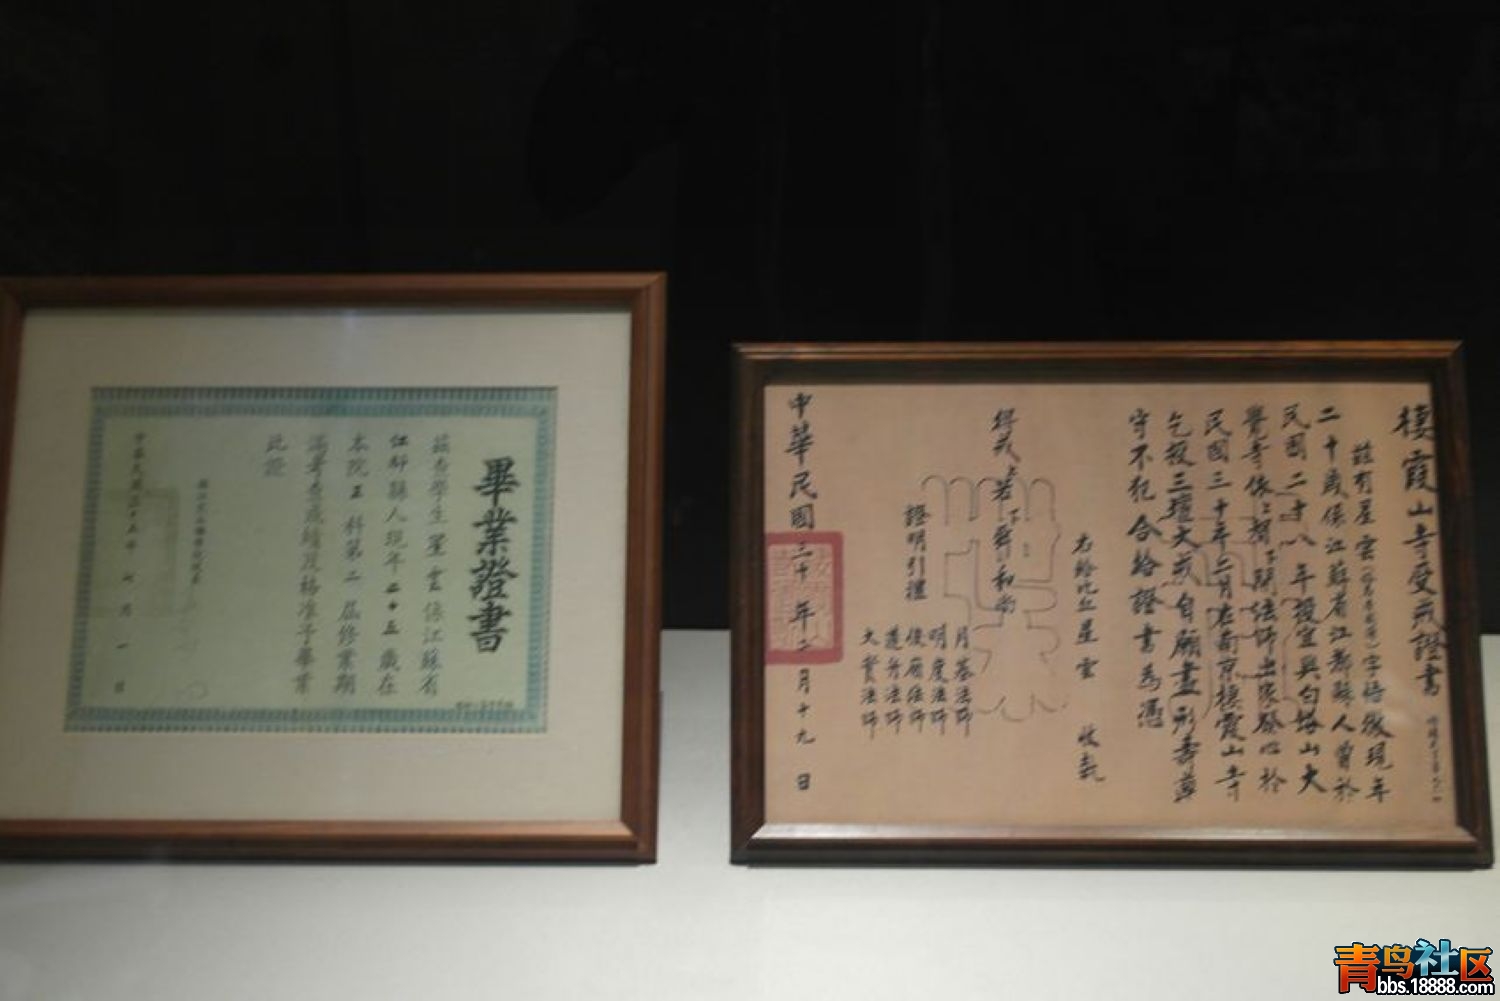 畢業證書
茲查學生星雲係江蘇省
江都縣人現年二十五歲在
本院正科第二屆修業期
滿考查成績及格准予畢業
此證
棲霞山寺受戒證書
茲有星雲
字悟徹現年
二十歲係江蘇省江都縣人曾於
民國二十八年投宜興白塔山大
覺寺依上志下開法師出家發心於
民國三十年二月在南京棲霞山寺
乞授三壇大戒自願盡形壽遵
守不犯合給證書為憑
右給比丘星雲 收執
得戒上若下舜和尚
證明引禮
月基法師
明度法師
俊嚴法師
蓮舟法師
大實法師
中華民國三十年二月十九日
青鸟社区
bbs.18888.com